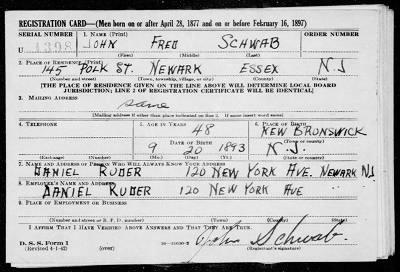 REGISTRATION CARD—(Men born on or after April 28, 1877 and on or before February 16, 1897)
SERIAL NUMBER 1. NAME (Print) ORDER NUMBER
U 1398 JOHN FRED SCHWAB
(First) (Middle) (Last)
2. PLACE OF RESIDENCE (Print)
145 POLK ST. NEWARK ESSEX N.J
(Number and street) (Town, township, village, or city) (County) (State)
[THE PLACE OF RESIDENCE GIVEN ON THE LINE ABOVE WILL DETERMINE LOCAL BOARD
JURISDICTION; LINE 2 OF REGISTRATION CERTIFICATE WILL BE IDENTICAL]
3. MAILING ADDRESS
same
[Mailing address if other than place indicated on line 2. If same insert word same]
4. TELEPHONE 5. AGE IN YEARS 6. PLACE OF BIRTH
48 NEW BRONSWICK
DATE OF BIRTH (Town or county)
9 20 1893 N.J.
(Exchange) (Number) (Mo.) (Day) (Yr.) (State or country)
7. NAME AND ADDRESS OF PERSON WHO WILL ALWAYS KNOW YOUR ADDRESS
DANIEL RUDER 120 NEW YORK AVE. NEWARK NJ
8. EMPLOYER'S NAME AND ADDRESS
DANIEL RUDER 120 NEW YORK AVE
9. PLACE OF EMPLOYMENT OR BUSINESS
(Number and street or R. F. D. number) (Town) (County) (State)
I AFFIRM THAT I HAVE VERIFIED ABOVE ANSWERS AND THAT THEY ARE TRUE.
D. S. S. Form 1
(Revised 4-1-42) (over) John Schwab
(Registrant's signature)